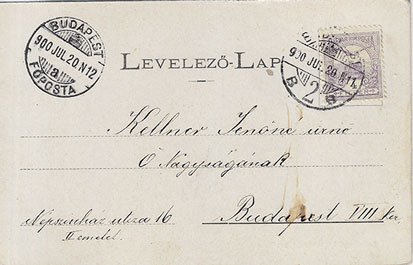 BUDAPEST
900 JUL 20 N 12
a
FŐPOSTA
900 JUL 20 N 11
B 2 a
LEVELEZŐ-LAP
Kellner Jenőné urnő
Ő Nagyságának
Népszinház utcza 16
II emelet.
Budapest VIII ker.